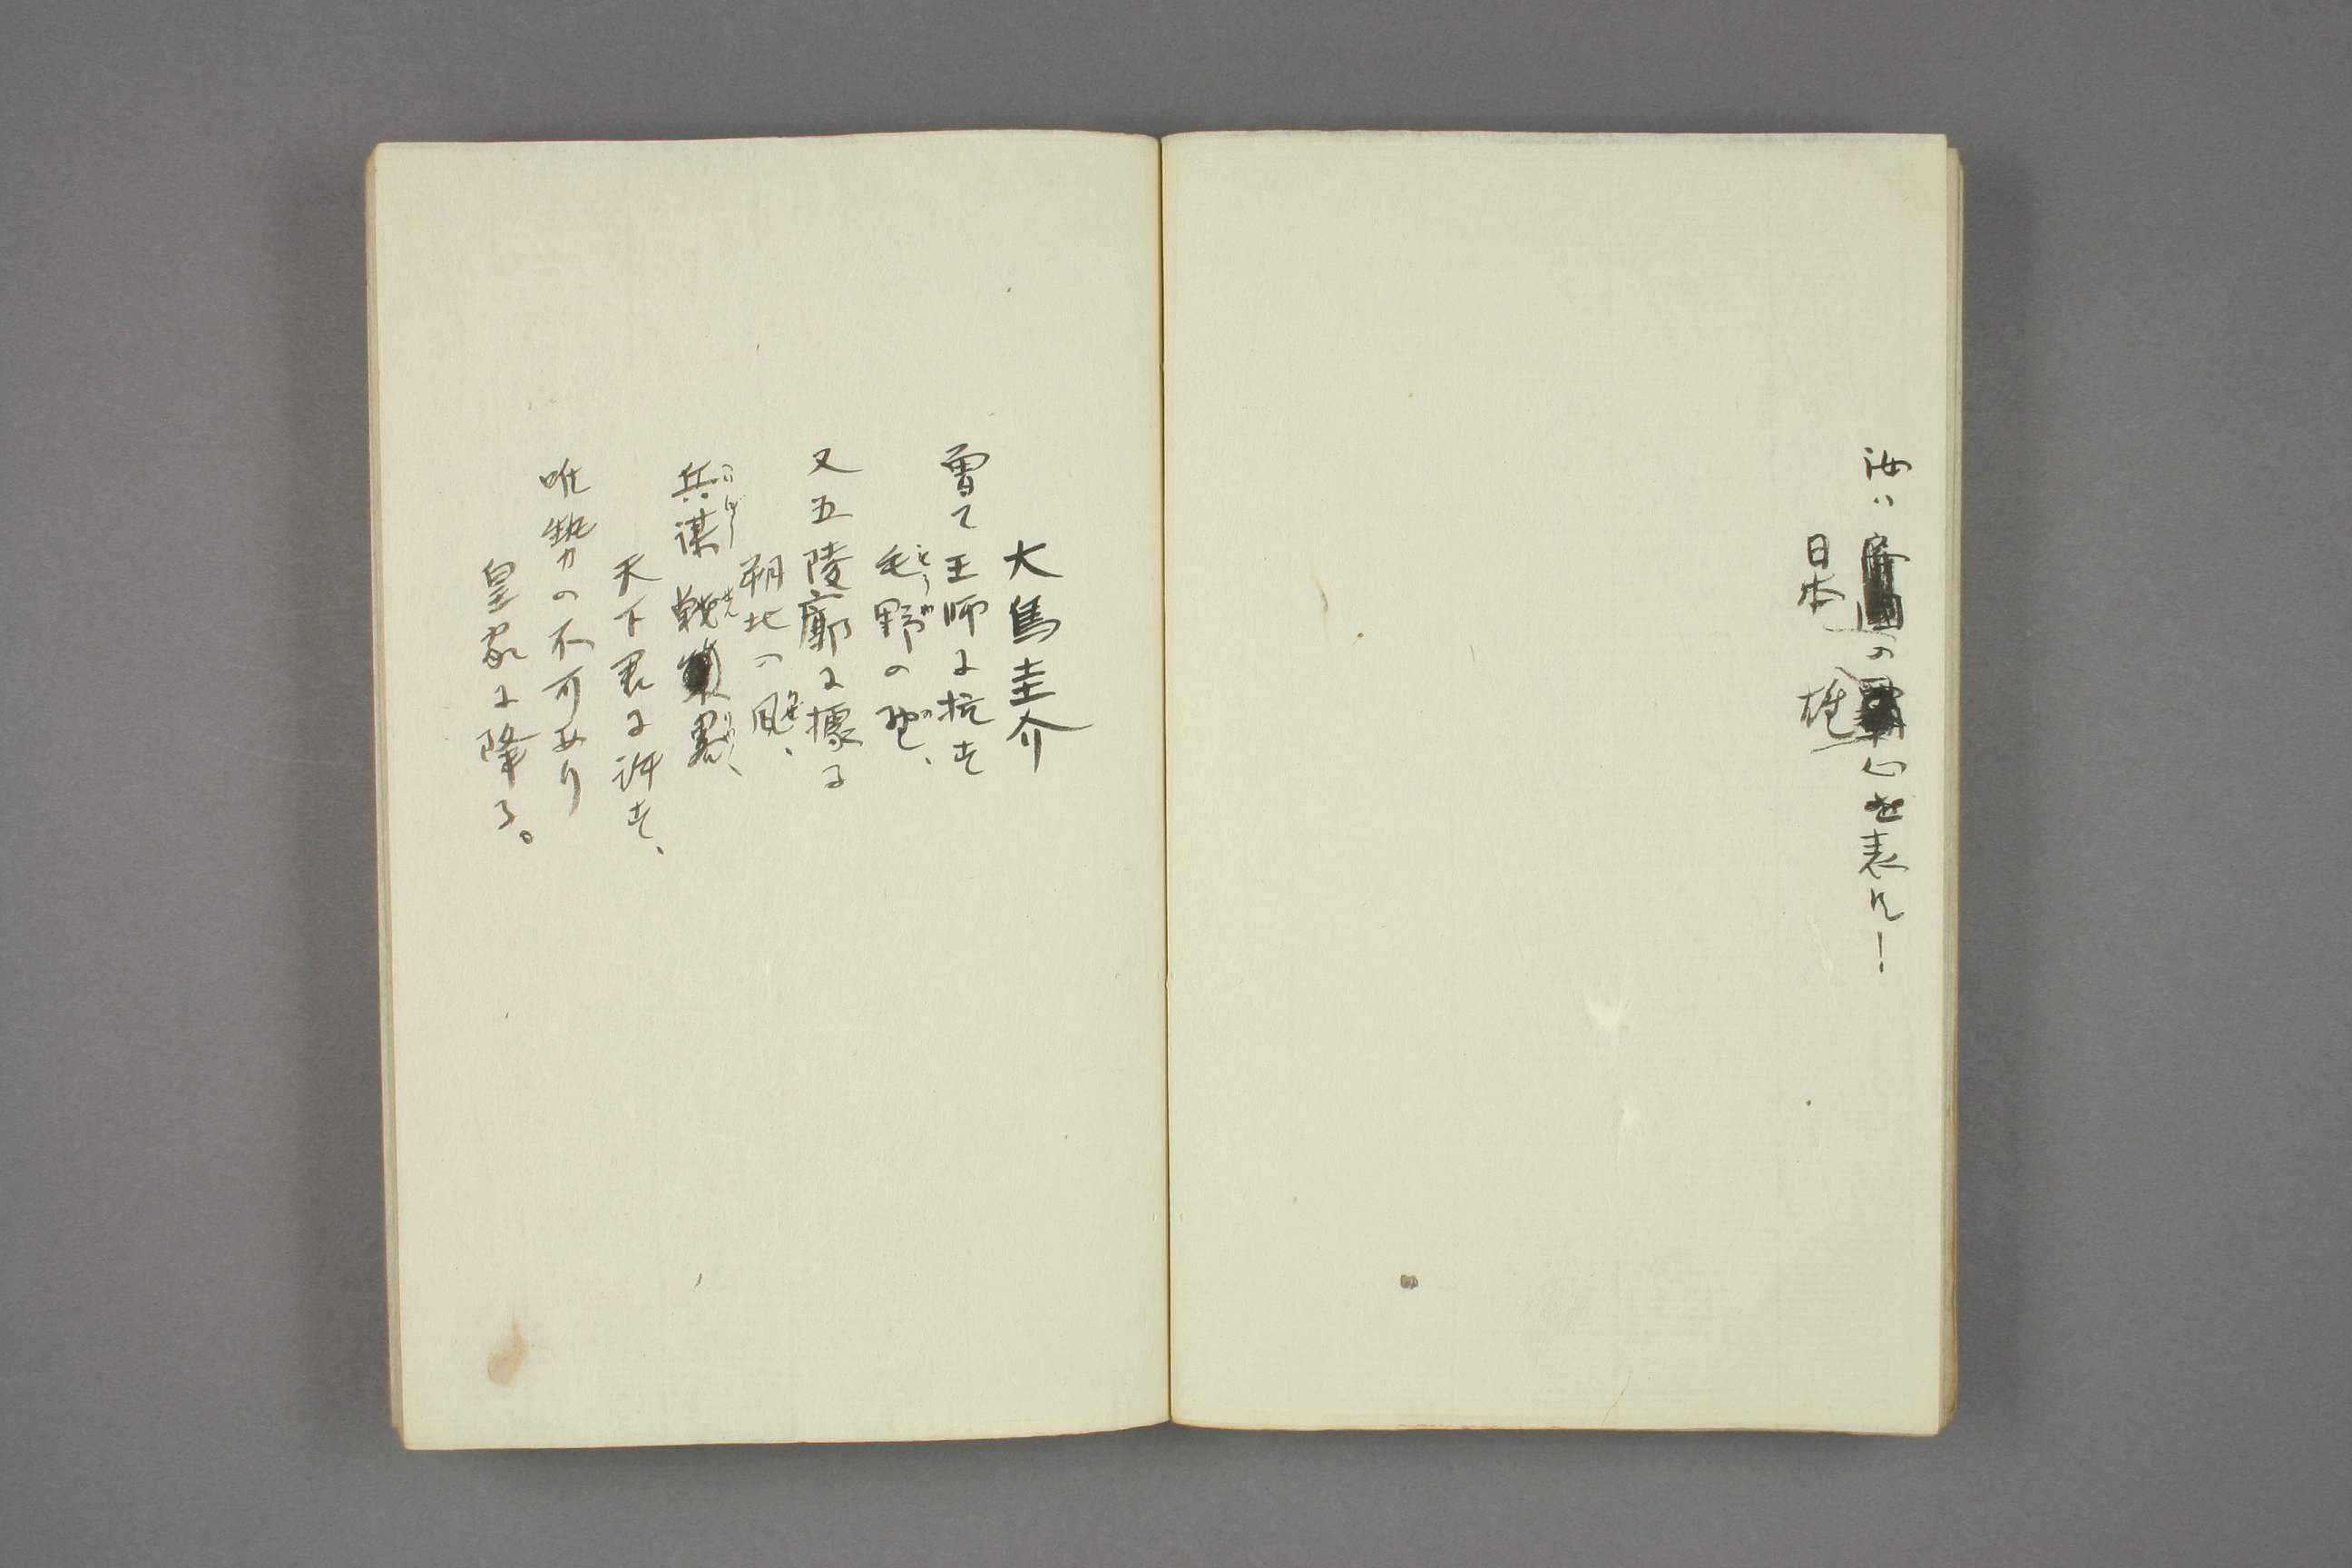 汝ハの心を表れ!
日本
雄
大鳥圭介
曽て王師に抗す
毛野の野、
又五陵廓に據る
朔北の風、
兵謀戦略、
天下君に許す、
唯勢の不可あり
皇家に降る。